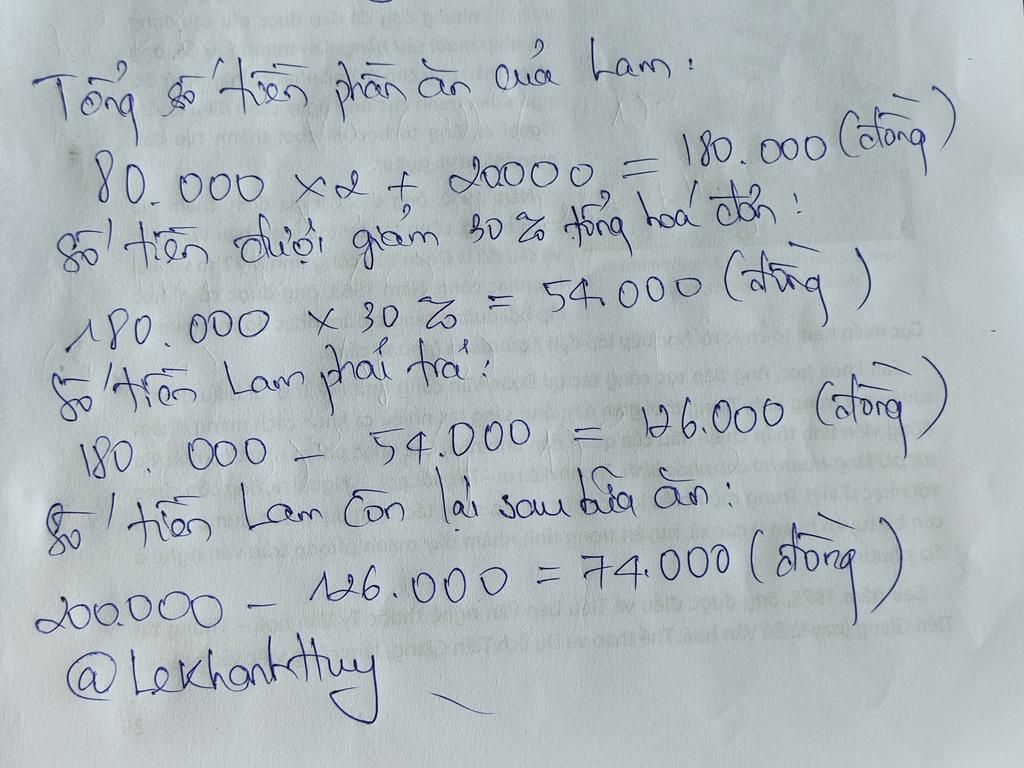 Tổng số tiền phần ăn của Lam:
80.000 x 2 + 20000 = 180.000 (đồng)
Số tiền được giảm 30% tổng hoá đơn:
180.000 x 30% = 54.000 (đồng)
Số tiền Lam phải trả:
180.000 - 54.000 = 126.000 (đồng)
Số tiền Lam còn lại sau bữa ăn:
200.000 - 126.000 = 74.000 (đồng)
@LeKhanhHuy